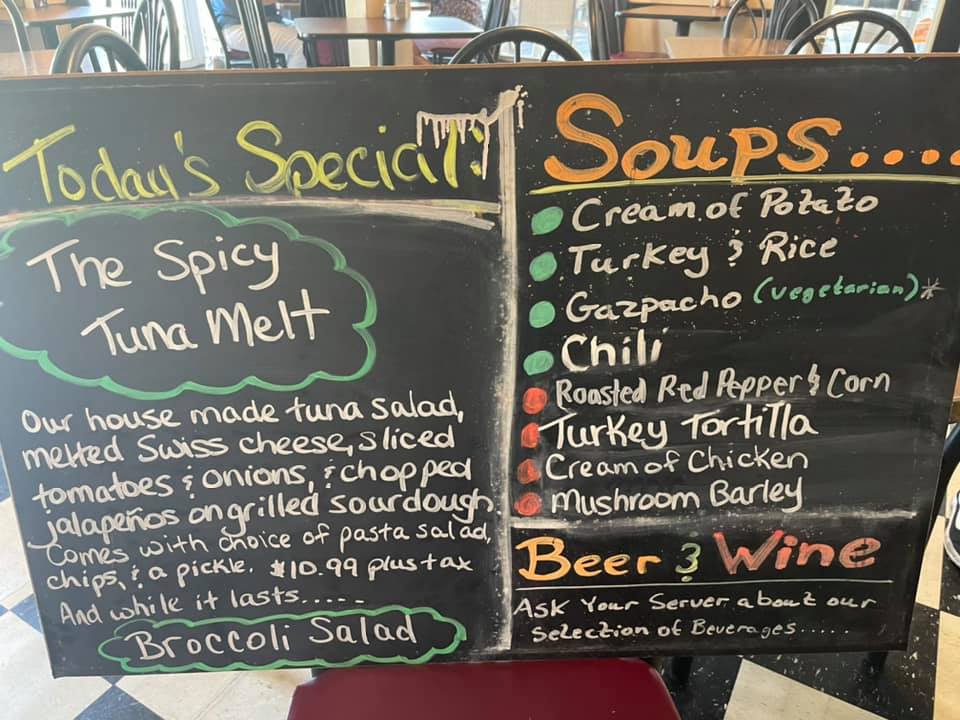 Today's Special:
The Spicy
Tuna Melt
Our house made tuna salad,
melted Swiss cheese, sliced
tomatoes & onions, & chopped
jalapeños on grilled sourdough.
Comes with choice of pasta salad,
chips, & a pickle. $10.99 plus tax
And while it lasts.....
Broccoli Salad
Soups....
Cream of Potato
Turkey & Rice
Gazpacho (vegetarian)*
Chili
Roasted Red Pepper & Corn
Turkey Tortilla
Cream of Chicken
Mushroom Barley
Beer & Wine
Ask Your Server about our
Selection of Beverages.....